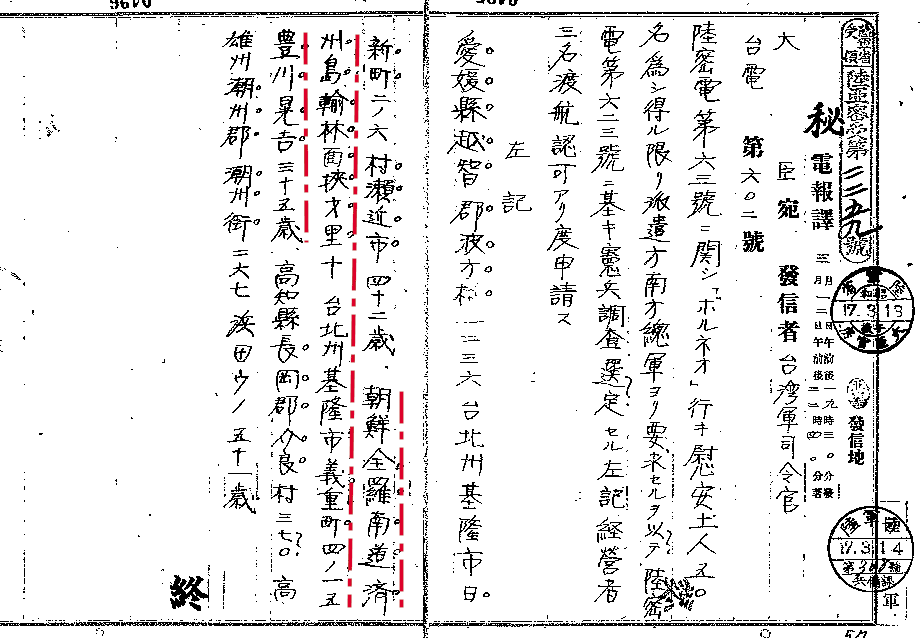 陸亜密受第二二五九號
秘 電報譯
三月一二日午前後一九時三〇分發
三月一二日午前後二二時四〇分著
發信地
大臣宛 發信者 台湾軍司令官
台電 第六〇二號
陸密電第六三號ニ関シ「ボルネオ」行キ慰安土人五〇
名為シ得ル限リ派遣方南方總軍ヨリ要求セルヲ以テ陸密
電第六二三號ニ基キ憲兵調査選定セル左記経營者
三名渡航認可アリ度申請ス
左記
愛媛縣越智郡波方村一二三六 台北州基隆市日
新町二ノ六 村瀬近市 四十二歳 朝鮮全羅南道済
州島翰林面挾才里十 台北州基隆市義重町四ノ一五
豊川晃吉 三十五歳 高知縣長岡郡介良村三七〇 高
雄州潮州郡潮州街二六七 浜田ウノ 五十一歳
終
陸軍省
昭和
17.3.13
陸軍
17.3.14
兵備課
軍